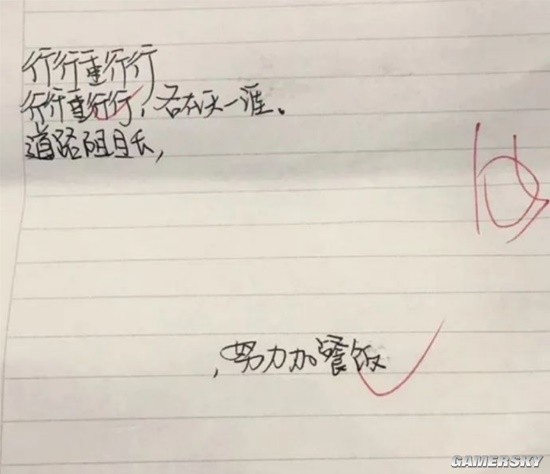 行行重行行
行行重行行，各在天一涯。
道路阻且长，
，努力加餐饭
GAMERSKY